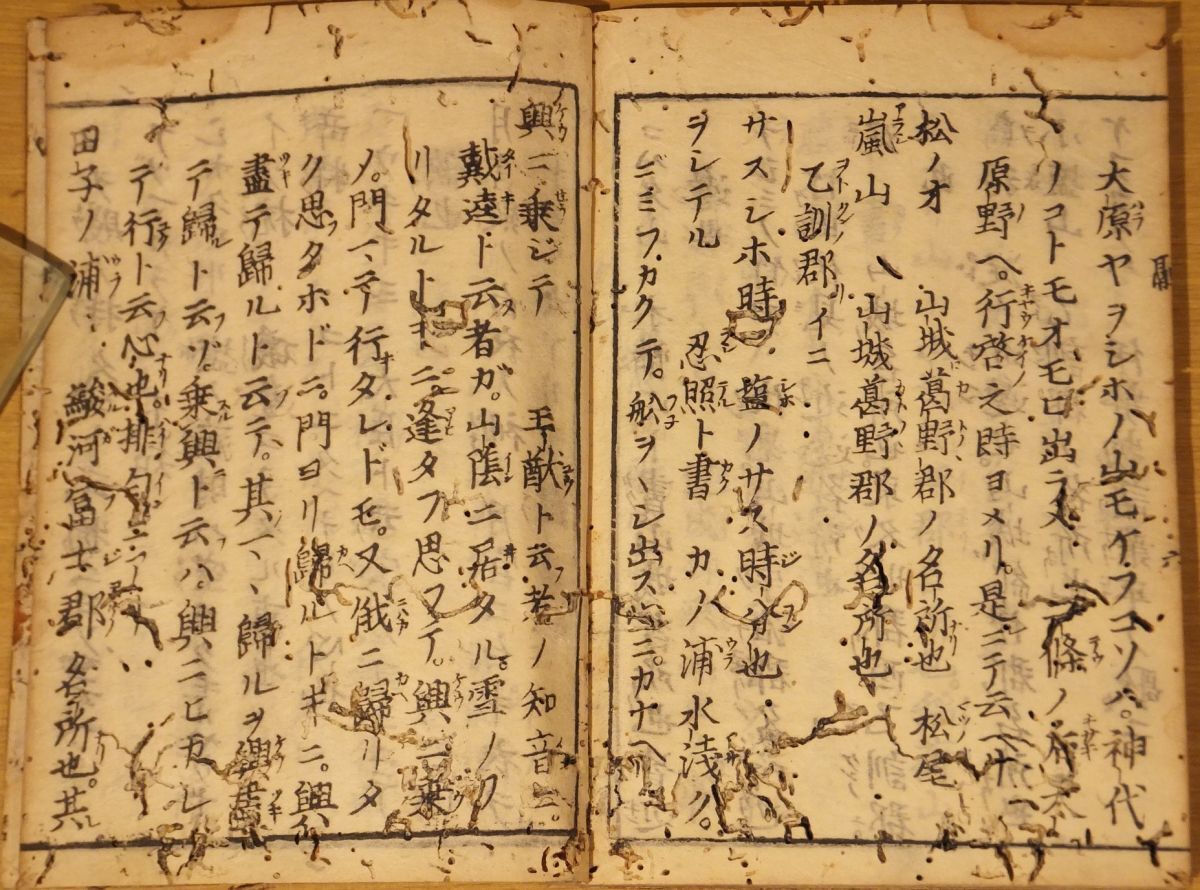 大原ヤヲシホノ山モケフコソハ。神代
ノコトモオモヒ出ラメ 二條ノ后大
原野ヘ。行啓之時ヨメリ。是ニテ云ヘナヘ
松ノオ 山城葛野郡ノ名所也 松尾
嵐山 山城葛野郡ノ名所也
乙訓郡イニ
サスシホ時 塩ノサス時分也
ヲシテル 忍照ト書 カノ浦水浅ク。
ニミフカクテ。舩ヲヽシ出スニ。カナヘリ
興ニ乗ジテ 王猷ト云者ノ知音ニ。
戴逵ト云者ガ。山陰ニ居タル。雪ノフ
リタルトキニ。逢タフ思フテ。興ニ乗
ノ。門マテ行タレドモ。又俄ニ歸リタ
ク思タホドニ。門ヨリ歸ルトキニ。興
盡テ歸ルト云テ。其マヽ歸ルヲ興盡
テ歸ト云ゾ。乗興ト云ハ。興ニヒカレ
テ行ト云心也。排句ニ
田子ノ浦 駿河富士郡名所也。其